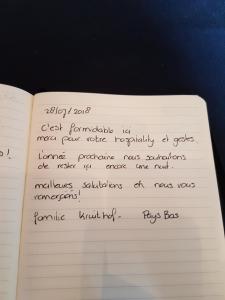 28/07/2018
C'est formidable ici
merci pour votre hospitality et gestes.
L'année prochaine nous souhaitons
de rester ici encore une nuit.
meilleures salutations en nous vous
remerçons!
familie Kruithof - Pays Bas
!